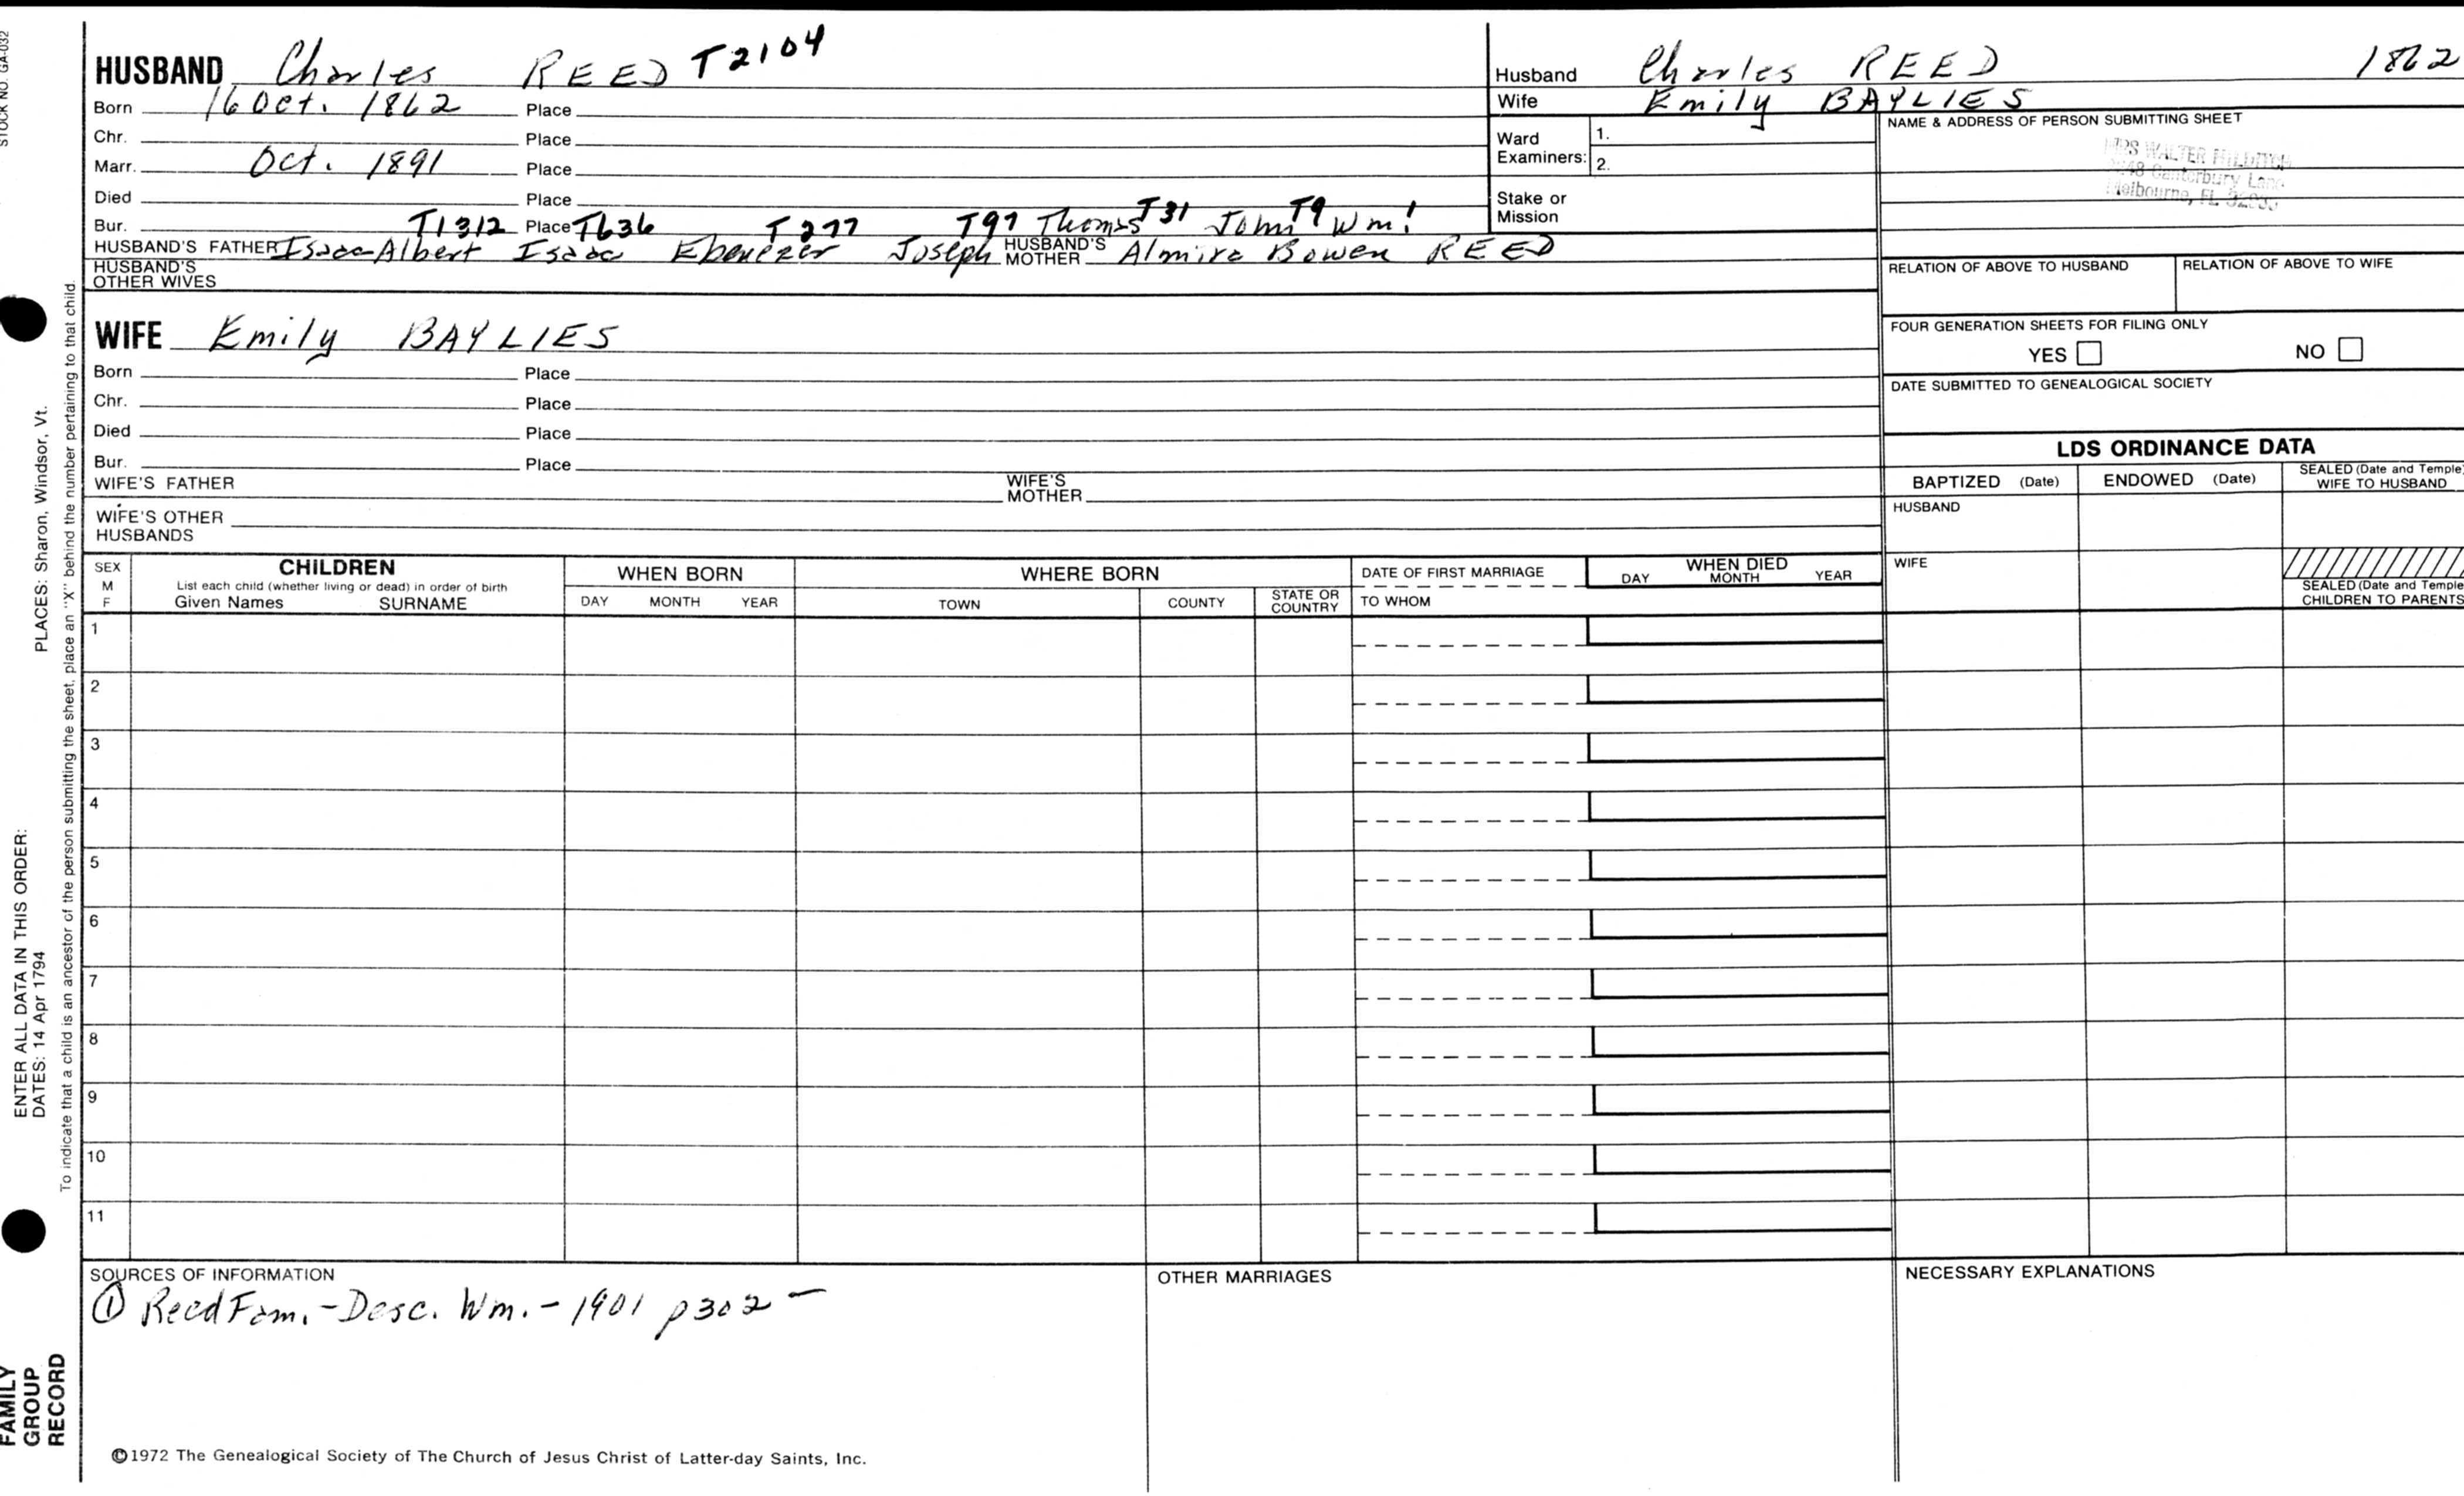 STOCK NO. GA-032
PLACES: Sharon, Windsor, Vt.
ENTER ALL DATA IN THIS ORDER:
DATES: 14 Apr 1794
To indicate that a child is an ancestor of the person submitting the sheet, place an "X" behind the number pertaining to that child.
FAMILY
GROUP
RECORD
HUSBAND Charles REED T2104
Born 16 Oct. 1862 Place
Chr. Place
Marr. Oct. 1891 Place
Died Place
Bur. T1312 Place T636 T277 T97 Thomas T31 John T9 Wm!
HUSBAND'S FATHER Isaac Albert Isaac Ebenezer Joseph HUSBAND'S MOTHER Almira Bowen REED
HUSBAND'S
OTHER WIVES
Husband Charles REED 1862
Wife Emily BAYLIES
Ward
Examiners:
1.
2.
Stake or
Mission
NAME & ADDRESS OF PERSON SUBMITTING SHEET
MRS WALTER HILDITCH
Canterbury Lane
Melbourne, FL
RELATION OF ABOVE TO HUSBAND
RELATION OF ABOVE TO WIFE
FOUR GENERATION SHEETS FOR FILING ONLY
YES NO
DATE SUBMITTED TO GENEALOGICAL SOCIETY
WIFE Emily BAYLIES
Born Place
Chr. Place
Died Place
Bur. Place
WIFE'S FATHER WIFE'S MOTHER
WIFE'S OTHER
HUSBANDS
LDS ORDINANCE DATA
BAPTIZED (Date) ENDOWED (Date) SEALED (Date and Temple) WIFE TO HUSBAND
HUSBAND
WIFE
SEALED (Date and Temple)
CHILDREN TO PARENTS
SEX
M
F
CHILDREN
List each child (whether living or dead) in order of birth
Given Names SURNAME
WHEN BORN
DAY MONTH YEAR
WHERE BORN
TOWN COUNTY STATE OR COUNTRY
DATE OF FIRST MARRIAGE
TO WHOM
WHEN DIED
DAY MONTH YEAR
1
2
3
4
5
6
7
8
9
10
11
SOURCES OF INFORMATION
① Reed Fam. - Desc. Wm. - 1901 p302 -
OTHER MARRIAGES
NECESSARY EXPLANATIONS
©1972 The Genealogical Society of The Church of Jesus Christ of Latter-day Saints, Inc.